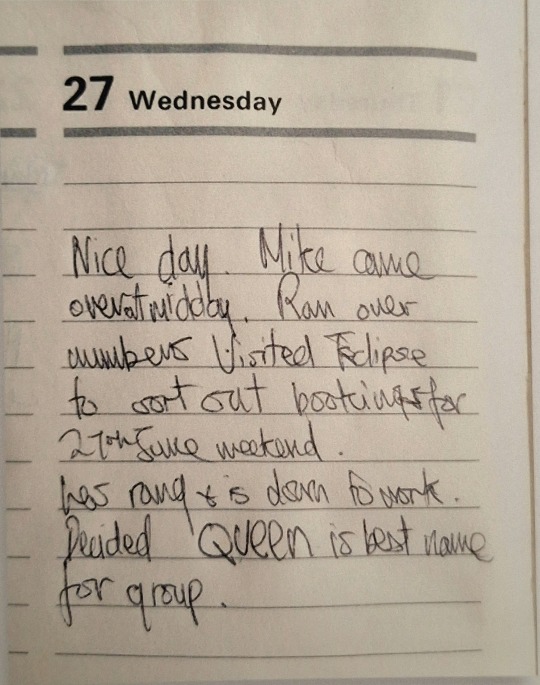 27 Wednesday
Nice day. Mike came
over at midday. Ran over
numbers Visited Eclipse
to sort out bookings for
27th June weekend.
has rang & is down to work.
Decided 'QUEEN is best name
for group.